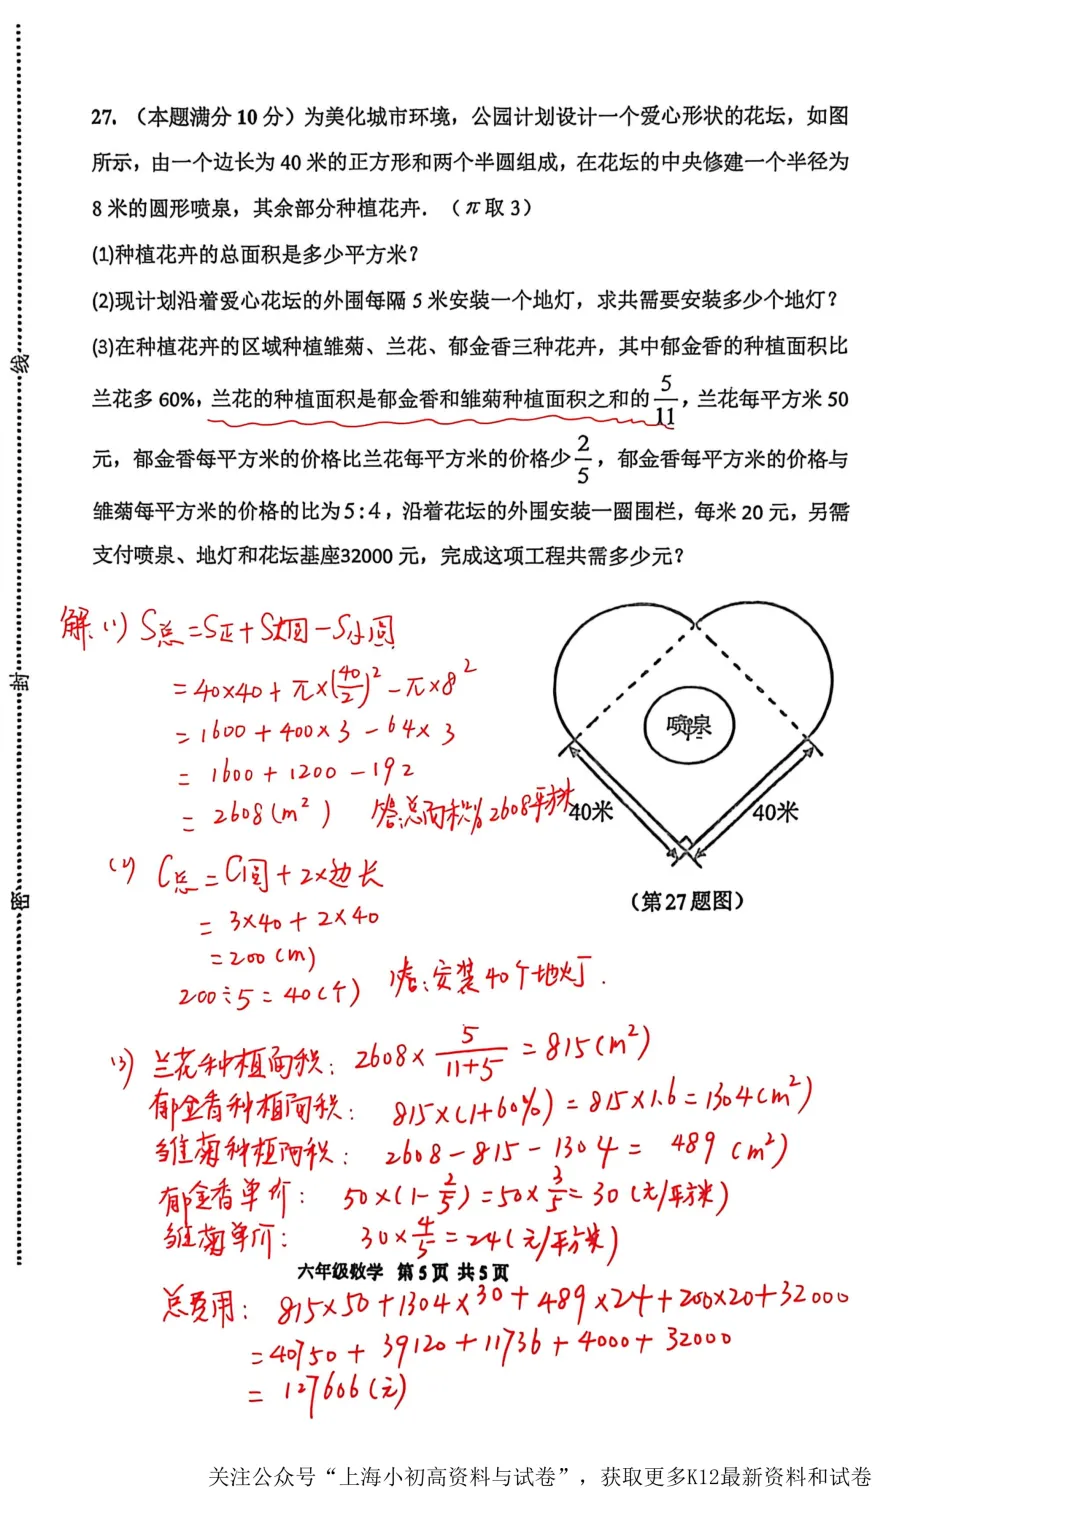 27. （本题满分 10 分）为美化城市环境，公园计划设计一个爱心形状的花坛，如图
所示，由一个边长为 40 米的正方形和两个半圆组成，在花坛的中央修建一个半径为
8 米的圆形喷泉，其余部分种植花卉．（π 取 3）
(1)种植花卉的总面积是多少平方米？
(2)现计划沿着爱心花坛的外围每隔 5 米安装一个地灯，求共需要安装多少个地灯？
(3)在种植花卉的区域种植雏菊、兰花、郁金香三种花卉，其中郁金香的种植面积比
兰花多 60%，兰花的种植面积是郁金香和雏菊种植面积之和的 5/11，兰花每平方米 50
元，郁金香每平方米的价格比兰花每平方米的价格少 2/5，郁金香每平方米的价格与
雏菊每平方米的价格的比为 5:4，沿着花坛的外围安装一圈围栏，每米 20 元，另需
支付喷泉、地灯和花坛基座32000 元，完成这项工程共需多少元？
解：(1) S总=S正+S大圆-S小圆
=40×40+π×(40/2)²-π×8²
=1600+400×3-64×3
=1600+1200-192
=2608(m²) 答：总面积为2608平方米
喷泉
40米
40米
（第27题图）
(2) C总=C圆+2×边长
=3×40+2×40
=200(m)
200÷5=40(个) 答：安装40个地灯．
(3) 兰花种植面积：2608×5/(11+5)=815(m²)
郁金香种植面积：815×(1+60%)=815×1.6=1304(m²)
雏菊种植面积：2608-815-1304=489(m²)
郁金香单价：50×(1-2/5)=50×3/5=30(元/平方米)
雏菊单价：30×4/5=24(元/平方米)
六年级数学 第5页 共5页
总费用：815×50+1304×30+489×24+200×20+32000
=40750+39120+11736+4000+32000
=127606(元)
密
封
线
关注公众号“上海小初高资料与试卷”，获取更多K12最新资料和试卷